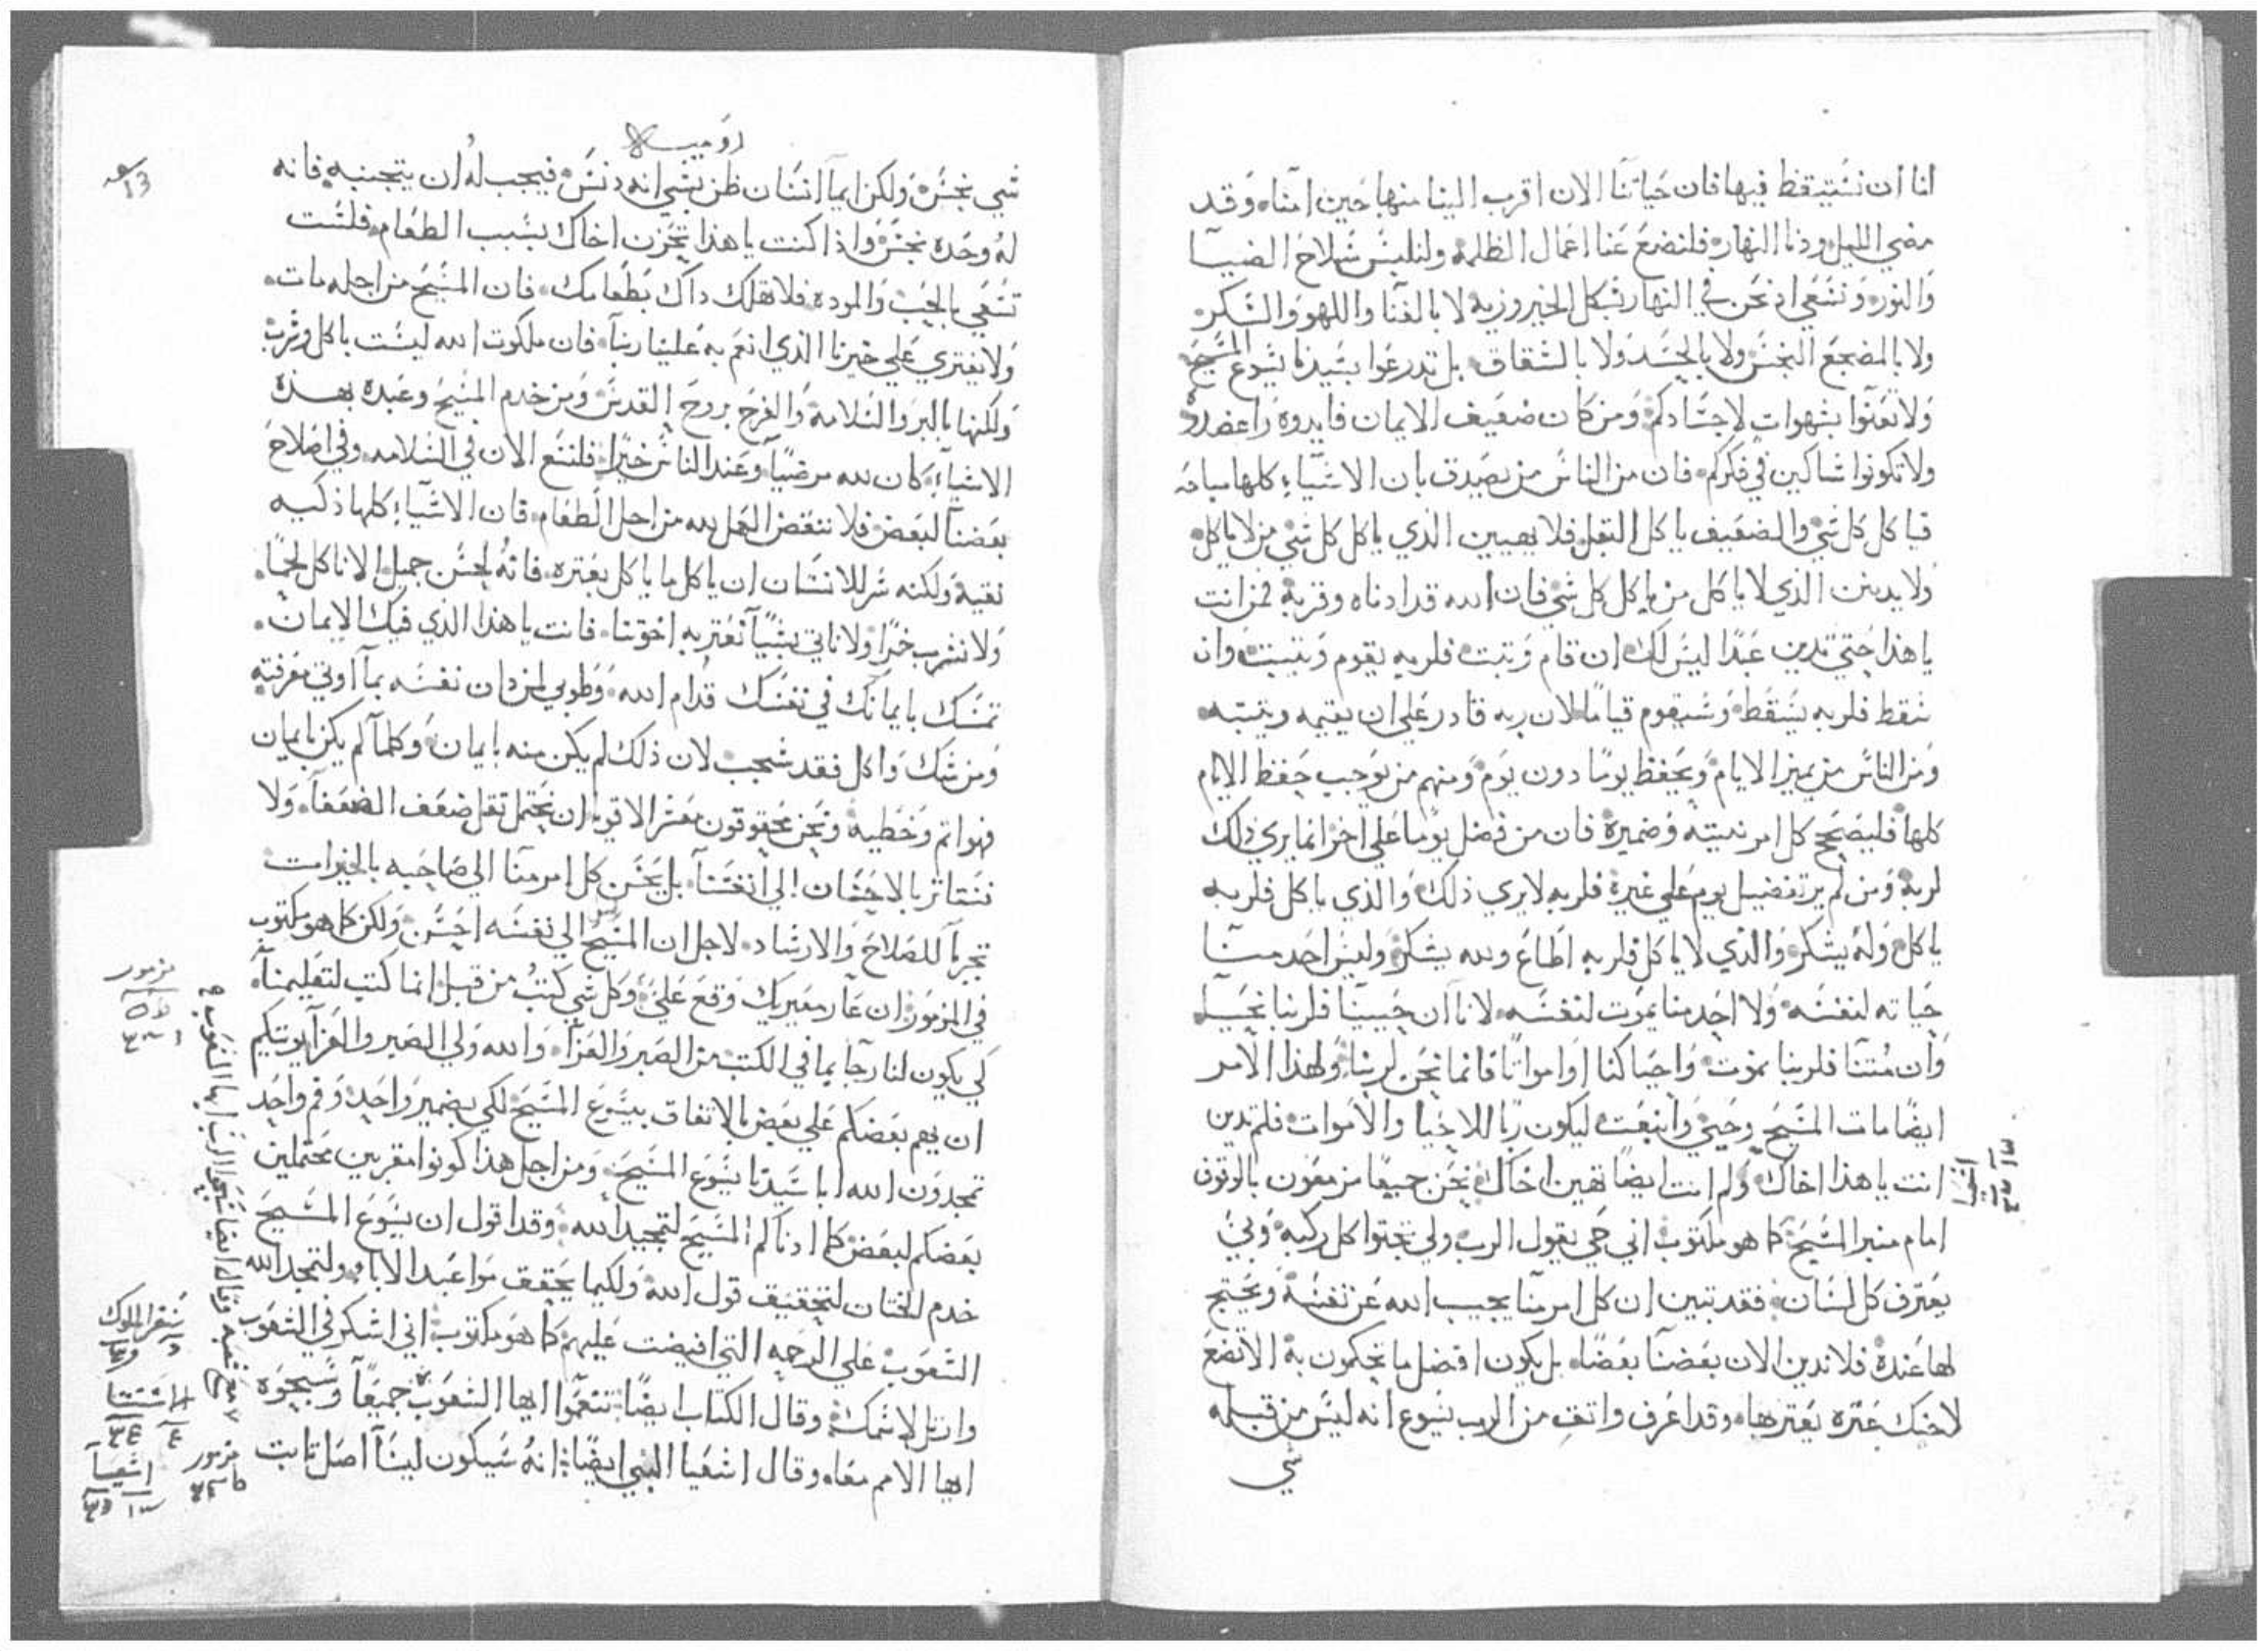 انا ان نستيقظ فيها فان حياتنا الان اقرب الينا منها حين امنا وقد
مضي الليل ودنا النهار فلنضع عنا اعمال الظلمه ولنلبس سلاح الضيا
والنور ونسعي اذ نحن في النهار بشكل الخير وزيه لا بالغنا واللهو والسكر
ولا بالمضجع النجس ولا بالحسد ولا بالشقاق بل تدرعوا بسيدنا يسوع المسيح
ولا تعتوا بشهوات لاجسادكم ومن كان ضعيف الايمان فايدوه واعضدوه
ولا تكونوا شاكين في فكركم فان من الناس من يصدق بان الاشياء كلها مباحه
فياكل كل شي والضعيف ياكل البقل فلا يعيبن الذي ياكل كل شي من لا ياكل
ولا يدينن الذي لا ياكل من ياكل كل شي فان الله قد ادناه وقربه فمن انت
يا هذا حتي تدين عبدا ليس لك ان قام وتبت فلربه يقوم ويتبت وان
سقط فلربه يسقط وسيقوم قياما لان ربه قادر علي ان يقيمه ويتبته
ومن الناس من يميز الايام ويحفظ يوما دون يوم ومنهم من يوجب حفظ الايام
كلها فليصحح كل امر نيته وضميره فان من فضل يوما علي اخر انما يري ذلك
لربه ومن لم ير تفضيل يوم علي غيره فلربه لا يري ذلك والذي ياكل فلربه
ياكل وله يشكر والذي لا ياكل فلربه اطاع ولله يشكر وليس احد منا
حياته لنفسه ولا احد منا يموت لنفسه لانا ان حيينا فلربنا نحيا
وان متنا فلربنا نموت واحيا كنا او امواتا فانما نحن لربنا ولهذا الامر
ايضا مات المسيح وحيي وانبعت ليكون ربا للاحيا والاموات فلم تدين
انت يا هذا اخاك ولم انت ايضا تهين اخاك نحن جميعا مزمعون بالوقوف
امام منبر المسيح كما هو مكتوب اني حي يقول الرب ولي تجتوا كل ركبه وبي
يعترف كل لسان فقد تبين ان كل امر منا يجيب الله عن نفسه ويحتج
لها عنده فلا ندين الان بعضنا بعضا بل يكون افضل ما تحكمون به الا تضع
لاخيك عتره يعتر بها وقد اعرف واتق من الرب يسوع انه ليس من قبله
شي
اشعيا
روميه
13
شي نجس ولكن ايما انسان ظن بشي انه دنس فيجب له ان يتجنبه فانه
له وحده نجس واذا كنت يا هذا تحزن اخاك بسبب الطعام فلست
تسعي بالحب والموده فلا تهلك داك بطعامك فان المسيح من اجله مات
ولا يفتري علي خيرنا الذي انعم به علينا ربنا فان ملكوت الله ليست باكل وشرب
ولكنها بالبر والسلامه والفرح بروح القدس ومن خدم المسيح وعبده بهذه
الاشياء كان لله مرضيا وعند الناس خيرا فلنسع الان في السلامه وفي اصلاح
بعضنا لبعض فلا ننقض العمل لله من اجل الطعام فان الاشياء كلها ذكيه
نقيه ولكنه شر للانسان ان ياكل ما ياكل بعتره فانه لحسن جميل الا ناكل لحما
ولا نشرب خمرا ولا ناتي بشيا نعتر به اخوتنا فانت يا هذا الذي فيك الايمان
تمسك بايمانك في نفسك قدام الله وطوبي لمن دان نفسه بما اوتي معرفته
ومن شك واكل فقد شجب لان ذلك لم يكن منه بايمان وكلما لم يكن بايمان
فهو اتم وخطيه ونحن محقوقون معشر الاقويا ان نحتمل تقل ضعف الضعفا ولا
نستاتر بالاحسان الي انفسنا بل يحسن كل امر منا الي صاحبه بالخيرات
تحريا للصلاح والارشاد لاجل ان المسيح ليس الي نفسه احسن ولكن كما هو مكتوب
في المزمور ان عار معيريك وقع علي وكل شي كتب من قبل انما كتب لتعليمنا
لكي يكون لنا رجا بما في الكتب من الصبر والعزا والله ولي الصبر والعزا يوتيكم
ان يهم بعضكم علي بعض بالاتفاق بيسوع المسيح لكي بضمير واحد وفم واحد
تمجدون الله ابا سيدنا يسوع المسيح ومن اجل هذا كونوا مقربين محتملين
بعضكم لبعض كما ادناكم المسيح لتمجيد الله وقد اقول ان يسوع المسيح
خدم الختان لتحقيق قول الله ولكيما يحقق مواعيد الابا ولتمجد الله
الشعوب علي الرحمه التي افيضت عليهم كما هو مكتوب اني اشكر في الشعوب
وارتل لاسمك وقال الكتاب ايضا تنعموا ايها الشعوب جميعا وسبحوه
ايها الامم معاه وقال اشعيا النبي ايضا انه سيكون ليسا اصل تابت
مزمور
مع شعبه وقال ايضا سبحوا الرب ايها الشعوب
سفر الملوك
مزمور
اشعيا